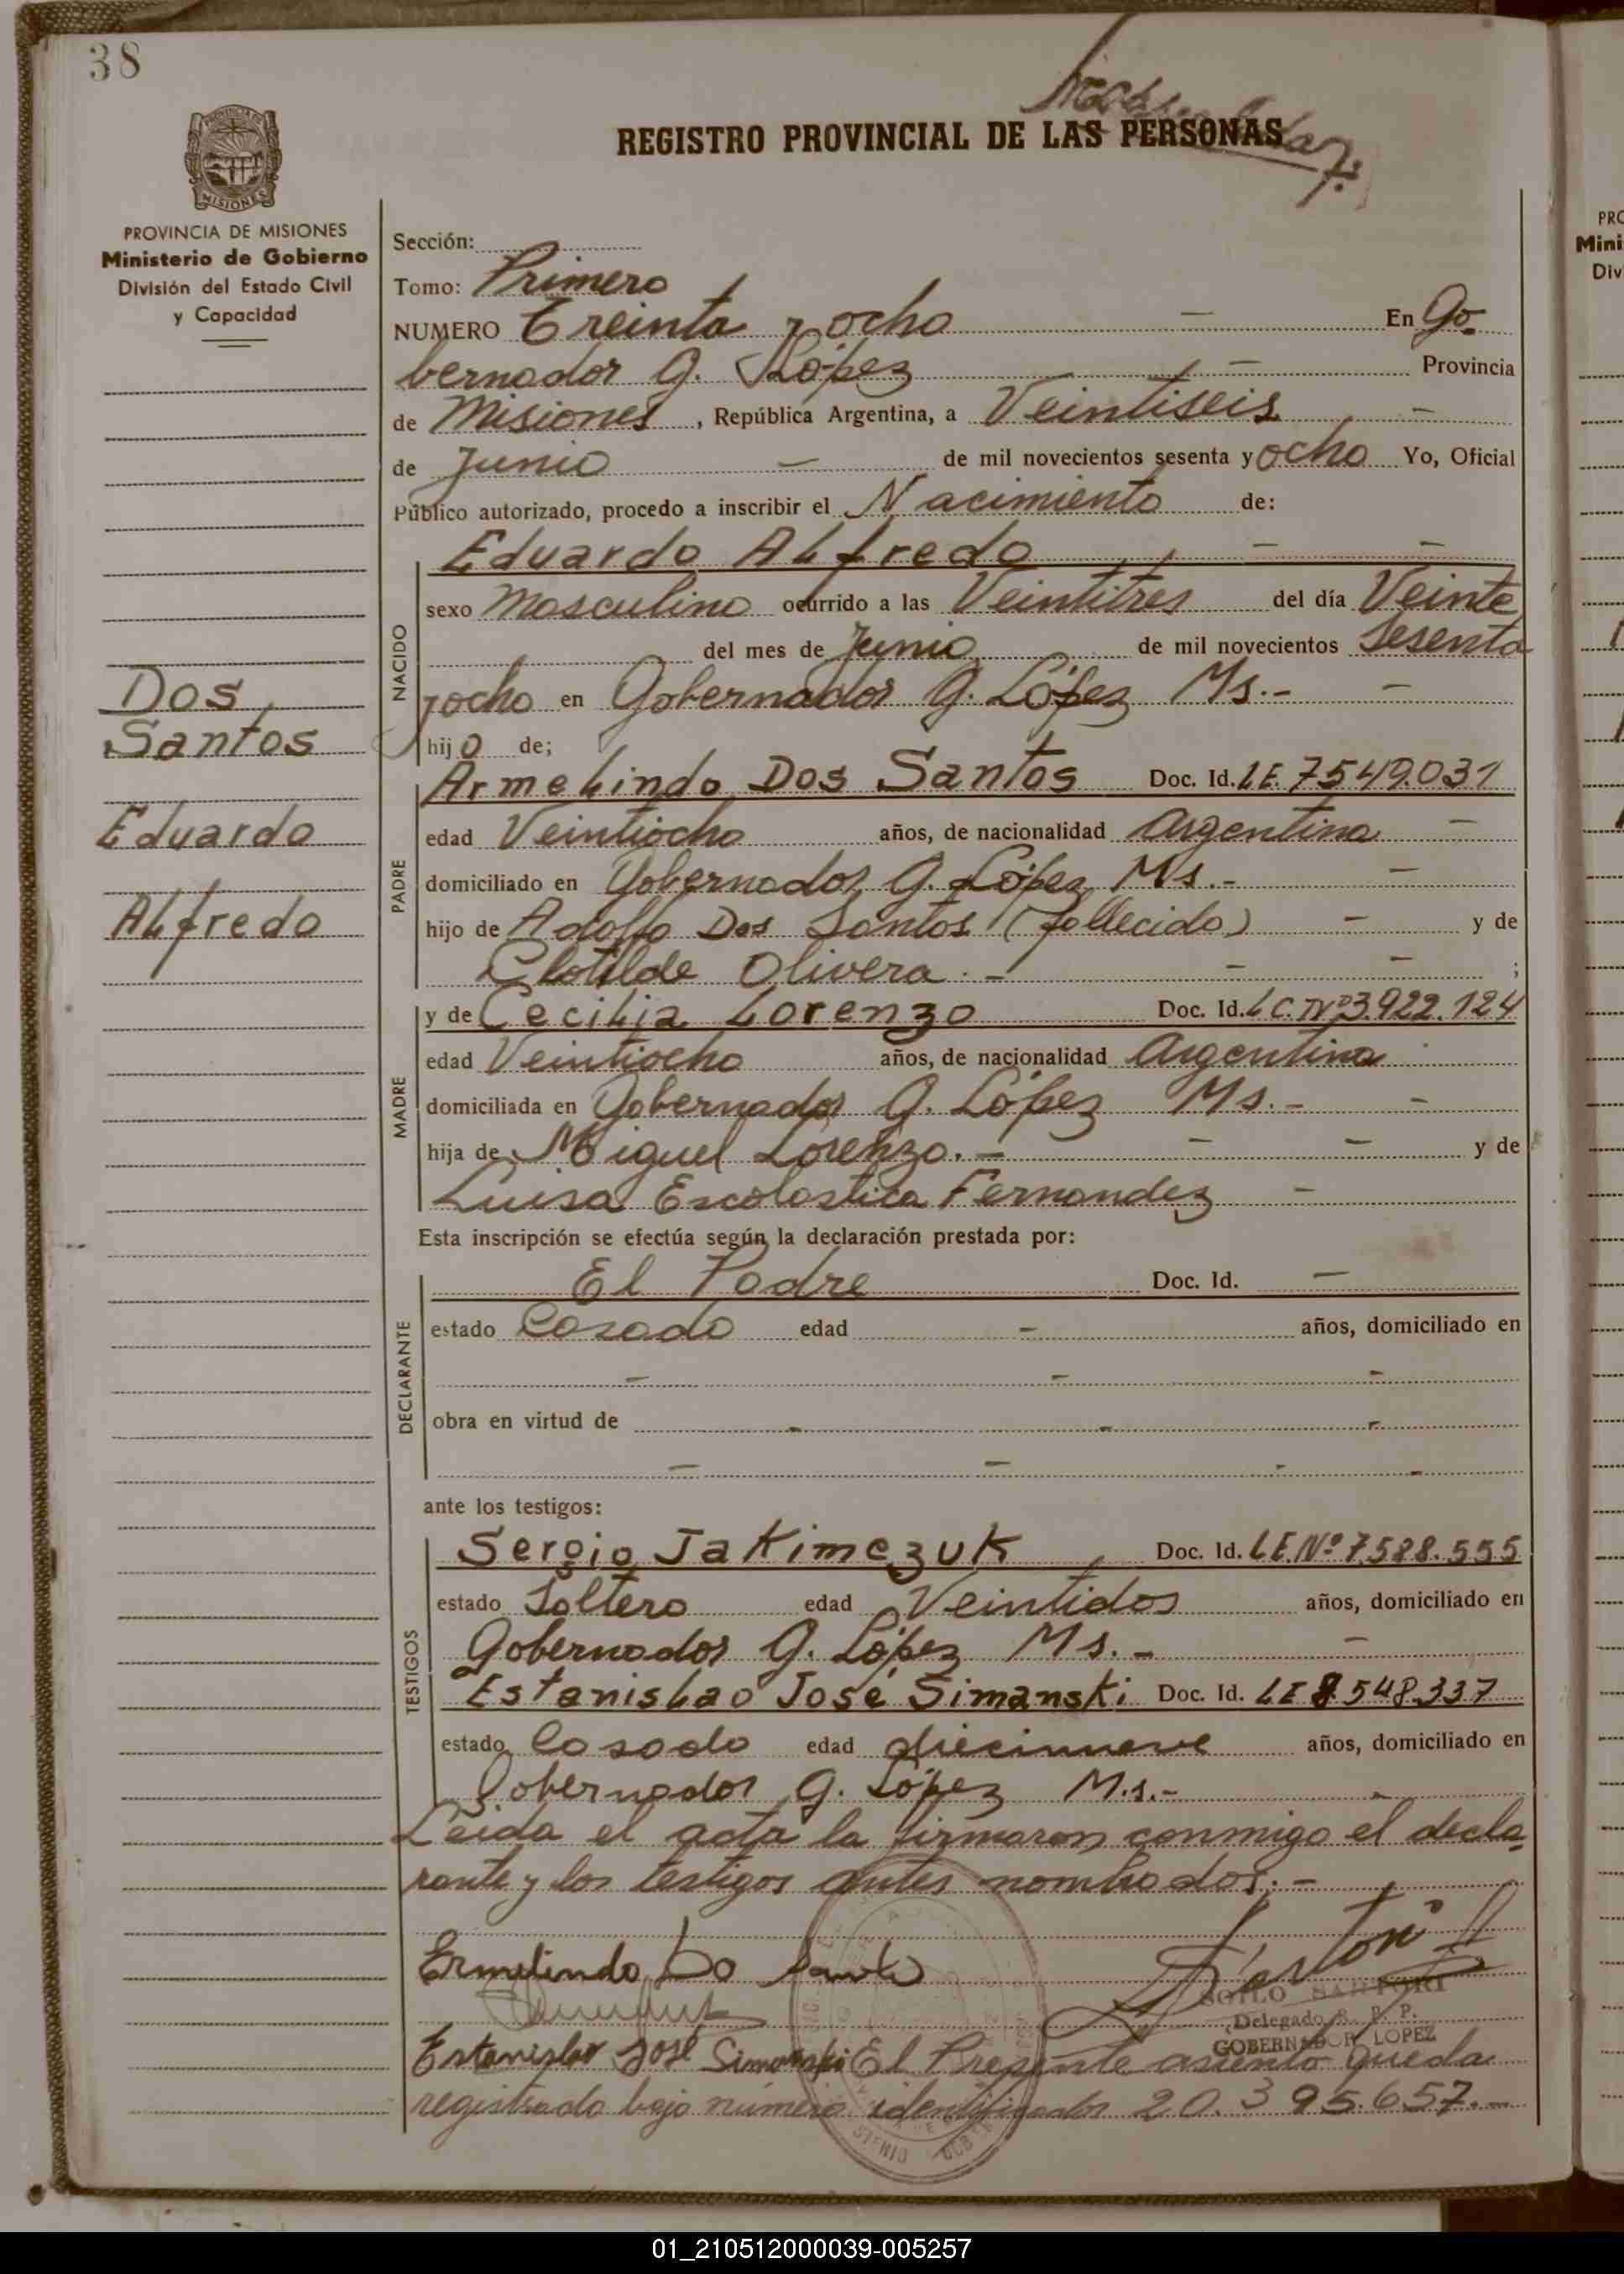 38
REGISTRO PROVINCIAL DE LAS PERSONAS
PROVINCIA DE MISIONES
Ministerio de Gobierno
División del Estado Civil
y Capacidad
Sección:
Tomo: Primero
NUMERO Treinta y ocho — En Go-
bernador G. López — Provincia
de Misiones, República Argentina, a Veintiseis —
de Junio — de mil novecientos sesenta y ocho Yo, Oficial
Público autorizado, procedo a inscribir el Nacimiento de:
Eduardo Alfredo — —
NACIDO
sexo Masculino ocurrido a las Veintitres del día Veinte
del mes de Junio de mil novecientos Sesenta
y ocho en Gobernador G. López Ms.- —
hijo de;
Dos
Santos
Eduardo
Alfredo
PADRE
Armelindo Dos Santos Doc. Id. L.E. 7.549.031
edad Veintiocho años, de nacionalidad Argentina —
domiciliado en Gobernador G. López Ms.- —
hijo de Adolfo Dos Santos (fallecido) — y de
Clotilde Olivera.- — — ;
MADRE
y de Cecilia Lorenzo Doc. Id. L.C. Nº 3.922.124
edad Veintiocho años, de nacionalidad Argentina
domiciliada en Gobernador G. López Ms.- —
hija de Miguel Lorenzo.- — — y de
Luisa Escolastica Fernandez —
Esta inscripción se efectúa según la declaración prestada por:
DECLARANTE
El Padre Doc. Id. —
estado Casado edad — años, domiciliado en
— — —
obra en virtud de - - -
— — - -
ante los testigos:
TESTIGOS
Sergio Jakimczuk Doc. Id. L.E. Nº 7.588.555
estado Soltero edad Veintidos años, domiciliado en
Gobernador G. López Ms.- —
Estanislao José Simanski Doc. Id. L.E 8.548.337
estado Casado edad diecinueve años, domiciliado en
Gobernador G. López M.s.- -
Leida el acta la firmaron conmigo el decla-
rante y los testigos antes nombrados.-
Ermelindo Do Santo
Delegado R. P. P.
GOBERNADOR LOPEZ
Estanislao José Simanski El Presente asiento queda
registrado bajo número identificador 20.395.657.-
01_210512000039-005257